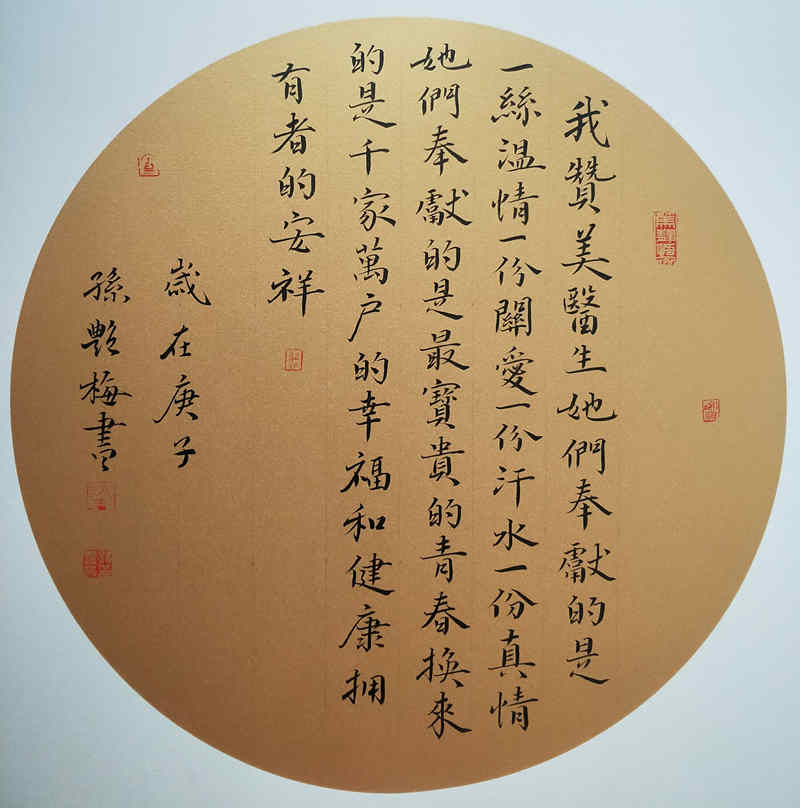 我贊美醫生她們奉獻的是
一絲溫情一份關愛一份汗水一份真情
她們奉獻的是最寶貴的青春換來
的是千家萬户的幸福和健康拥
有者的安祥
歲在庚子
孫艷梅書